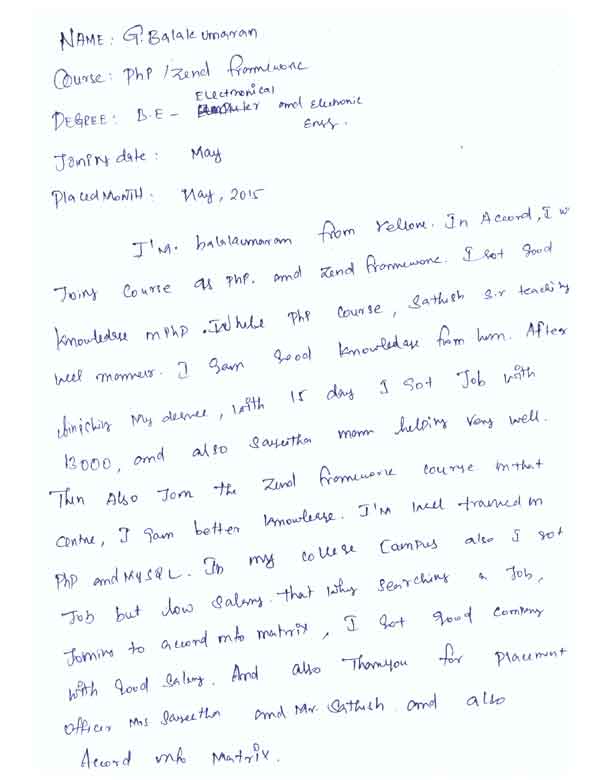 NAME: G. Balakumaran
Course: PhP / Zend framework
Electronical
DEGREE: B.E - and Electronic
Engg.
Joining date: May
Placed MONTH: May, 2015
I'M. balakumaran from vellore. In Accord, I w
Joing course as PhP. and Zend Framework. I Got good
knowledge in PhP. In PhP course, Sathish Sir teaching
well manner. I Gain Good knowledge from him. After
finiching My degree, with 15 day I Got Job with
13000, and also Sageetha mam helping very well.
Then Also Join the Zend framework course in that
Centre, I Gain better knowledge. I'M well trained in
PhP and MySQL. In my college Campus also I got
Job but low Salary. that Why Searching a Job,
Joining to accord info matrix, I Got good company
with Good Salary. And also Thankyou for Placement
officer Mrs Sageetha and Mr. Sathish and also
Accord info Matrix.